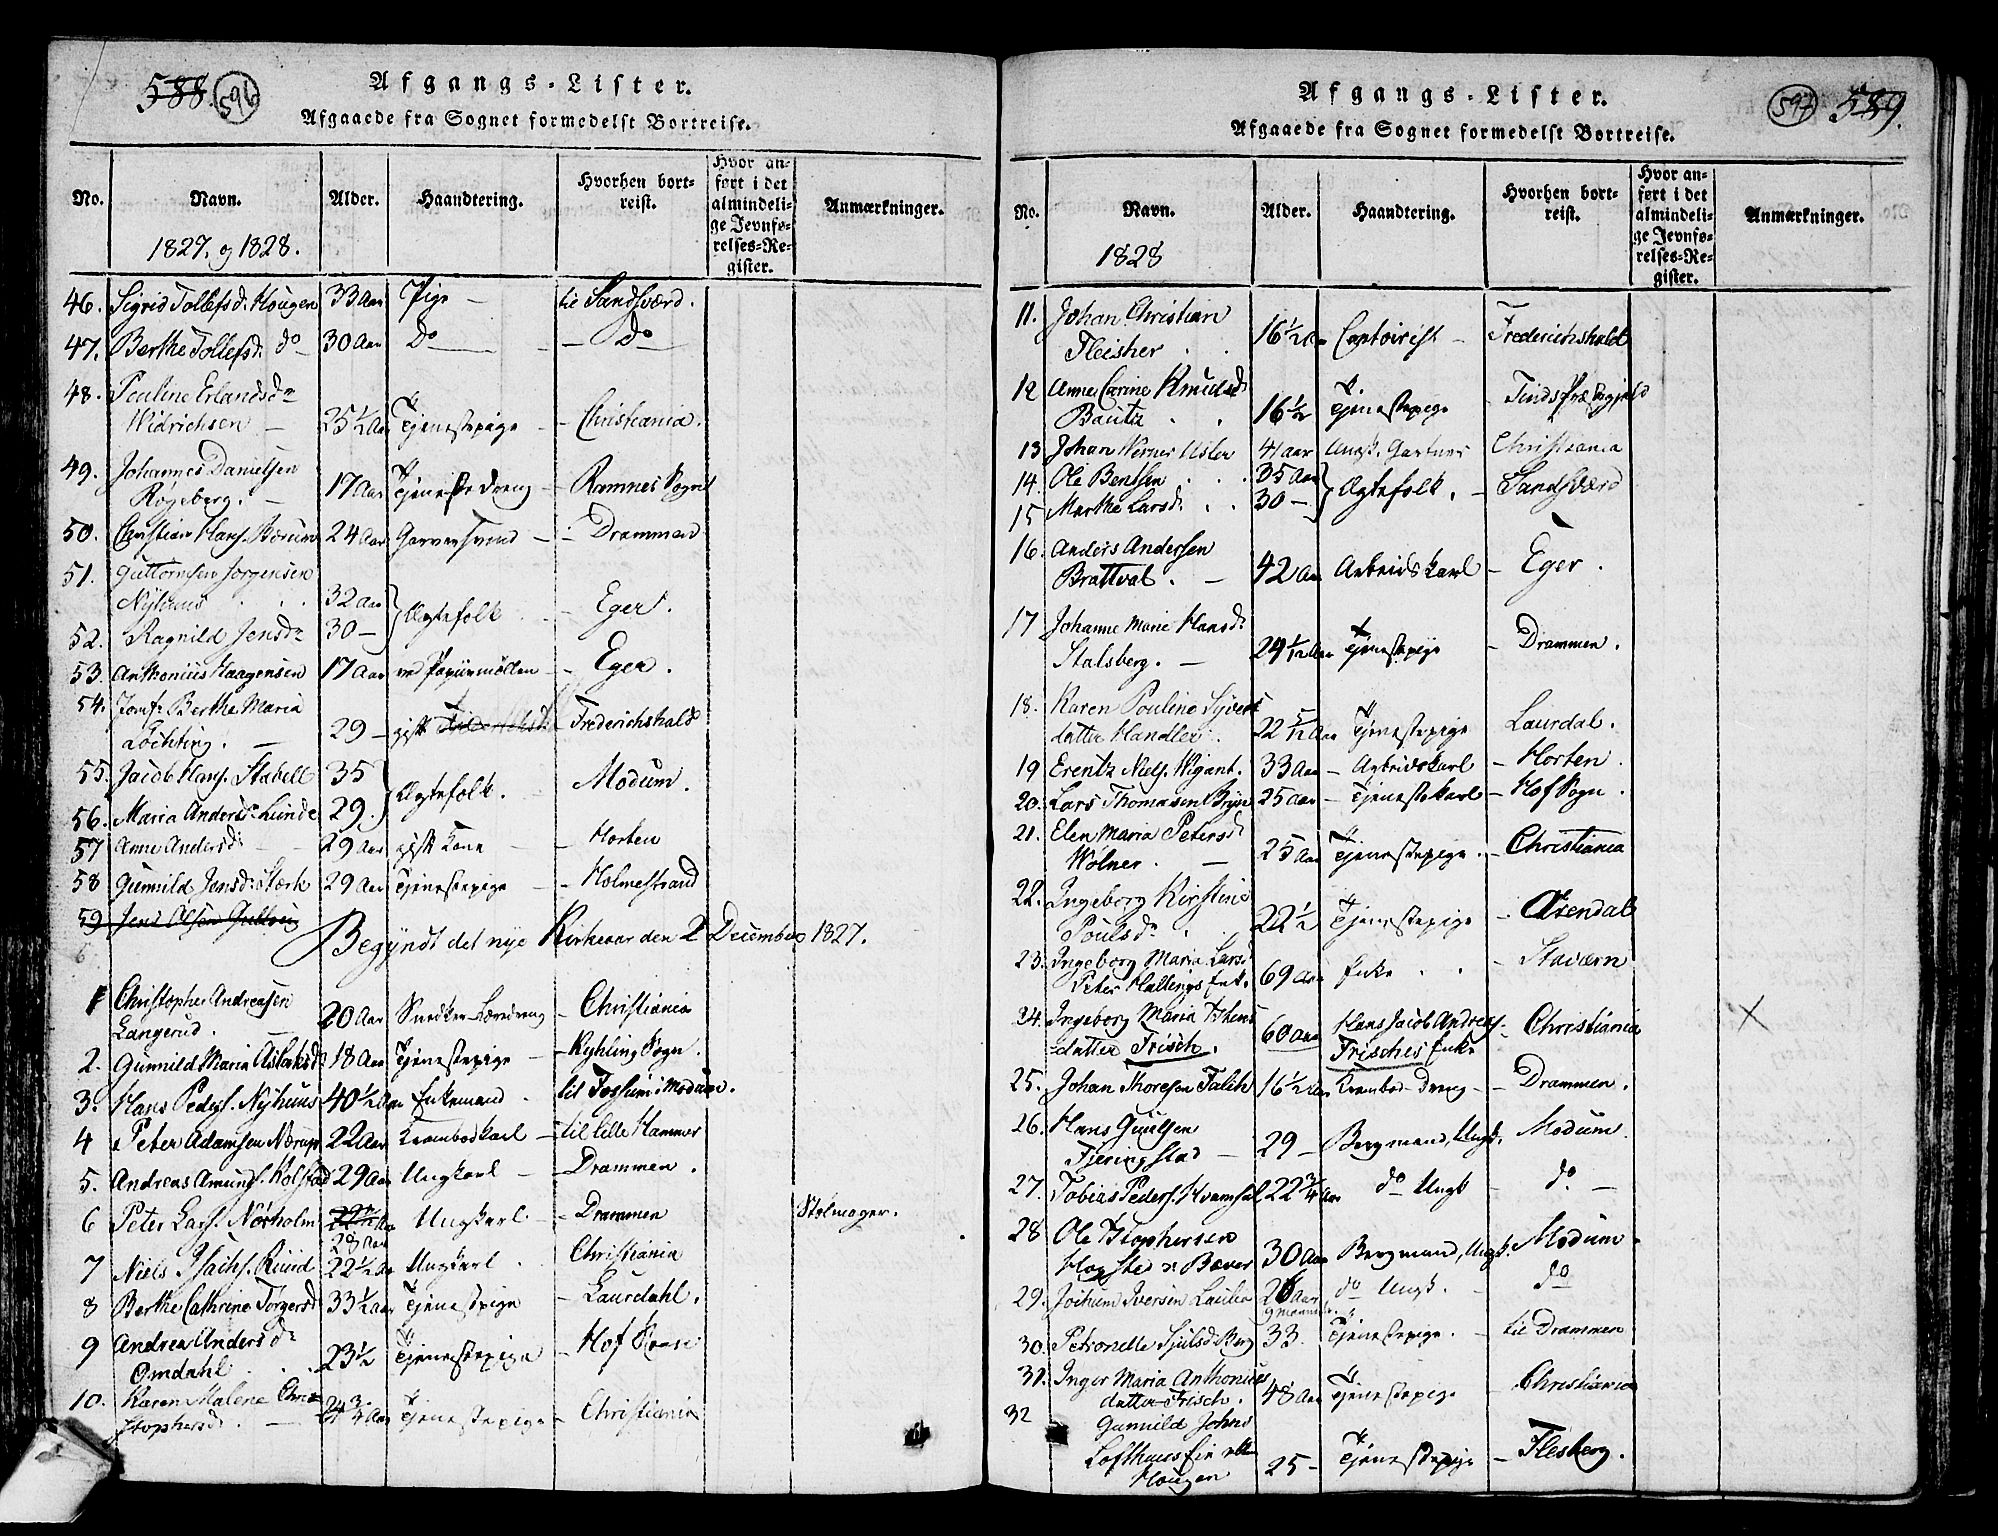 588. 596
Afgangs-Lister.
Afgaaede fra Sognet formedelst Bortreise.
No. Navn. Alder. Haandtering. Hvorhen bortreist. Hvor anført i det almindelige Jevnførelses-Register. Anmærkninger.
1827. og 1828.
46. Sigrid Tollefsd. Hougen 33 Aar Pige – til Sandsværd.
47. Berthe Tollefsd. do 30 Aar Do – Do
48. Pouline Erlandsdr
Widrichsen – 25½ Aar Tjenestepige – Christiania.
49. Johannes Danielsen
Røgeberg. – 17 Aar Tjenestedreng – Ramnes Sogn
50. Christian Hans. Bærum 24 Aar Garversvend – Drammen
51. Guttormsen Jorgensen
Nyhuus 32 Aar
Ægtefolk – Eger.
52. Ragnild Jensdr 30 –
53. Anthonius Haagensen 17 Aar ved Papiirmøllen – Eger.
54. Jomfr. Berthe Maria
Løchting. – 29 – gift Frederichshald
55. Jacob Hans. Stabell 35
Ægtefolk. – Modum.
56. Maria Andersdr Lunde 29.
57 Anne Andersd. 29 Aar gift Kone – Horten
58 Gunnild Jensd. Stærk 29 Aar Tjenestepige – Holmestrand
59 Jens Olsen
Begyndt det nye Kirkeaar den 2 December 1827.
1 Christopher Andreasen
Langerud. – 20 Aar Snedker Læredreng – Christiania
2. Gunnild Maria Aslaksd. 18 Aar Tjenestepige – Kyhling Sogn.
3. Hans Peders. Nyhuus 40½ Aar Enkemand. til Fossum i Modum.
4 Peter Adamsen Nærup 22 Aar Krambodkarl – til Lille Hammer
5. Andreas Amunds. Kolstad 29 Aar Ungkarl – Drammen.
6 Peter Lars. Nørholm 22½ Aar Ungkarl – Drammen Stolmager.
29 Aar
7 Niels Isachs. Ruud 22½ Aar Ungkarl. Christiania
8 Berthe Cathrine Torgersd. 33½ Aar Tjenestepige – Laurdahl.
9 Andrea Andersdr
Omdahl 23½ Tjenestepige – Hof
10. Karen Malene Chri-
stophersd. – 24¾ Aar Tjenestepige – Christiania
597 589.
Afgangs-Lister.
Afgaaede fra Sognet formedelst Bortreise.
No. Navn. Alder. Haandtering. Hvorhen bortreist. Hvor anført i det almindelige Jevnførelses-Register. Anmærkninger.
1828
11. Johan Christian
Fleisher 16½ Aar Contoirist – Frederichshald
12 Anne Carine Knudsd.
Bautz 16½ Tjenestepige – Tinds Præstegjeld
13 Johan Werner Usler 41 Aar Ungk. Gartner Christiania
14. Ole Bentsen 35 Aar
Ægtefolk. – Sandsværd
15 Marthe Larsd. 30 –
16. Anders Andersen
Brattval. – 42 Aar Arbeidskarl – Eger.
17 Johanne Marie Hansd.
Stalsberg. – 24 1/12 Aar Tjenestepige – Drammen.
18. Karen Pouline Syverts
datter Handler. 22 5/12 Aar Tjenestepige Laurdal.
19 Erentz Niels. Wigant. 33 Aar – Arbeidskarl – Horten.
20. Lars Thomasen Bryn 25 Aar – Tjenestekarl – Hof Sogn.
21. Elen Maria Petersd.
Wolner. – 25 Aar Tjenestepige. – Christiania
22. Ingeborg Kirstine
Poulsdr 22½ Tjenestepige – Arendal
23. Ingeborg Maria Larsd.
Peter Hallings Enk. 69 Aar Enke – Staværn
24. Ingeborg Maria
datter Frisch. 60 Aar Hans Jacob Andreas Frisches Enke Christiania X
25. Johan Thoresen Falch 16½ Aar Krambod Dreng – Drammen.
26. Hans Guulsen
Fjeringstad – 29 – Bergmand, Ungk. Modum.
27. Tobias Peders. Hvamsal 22¾ Aar do Ungk – do –
28 Ole Stophersen
Hagsted v. Bæver 30 Aar Bergmand, Ungk. Modum
29. Jochum Iversen Lauba 26 Aar do Ungk. do
9 Maaneder.
30. Petronelle Sjulsd. Berg 33. Tjenestepige. – til Drammen
31. Inger Maria Anthonius
datter Frisch. 48 Aar Tjenestepige – Christiania
32 Gunnild Johns
Lofthuus
Hougen 25 – Tjenestepige – Flesberg.